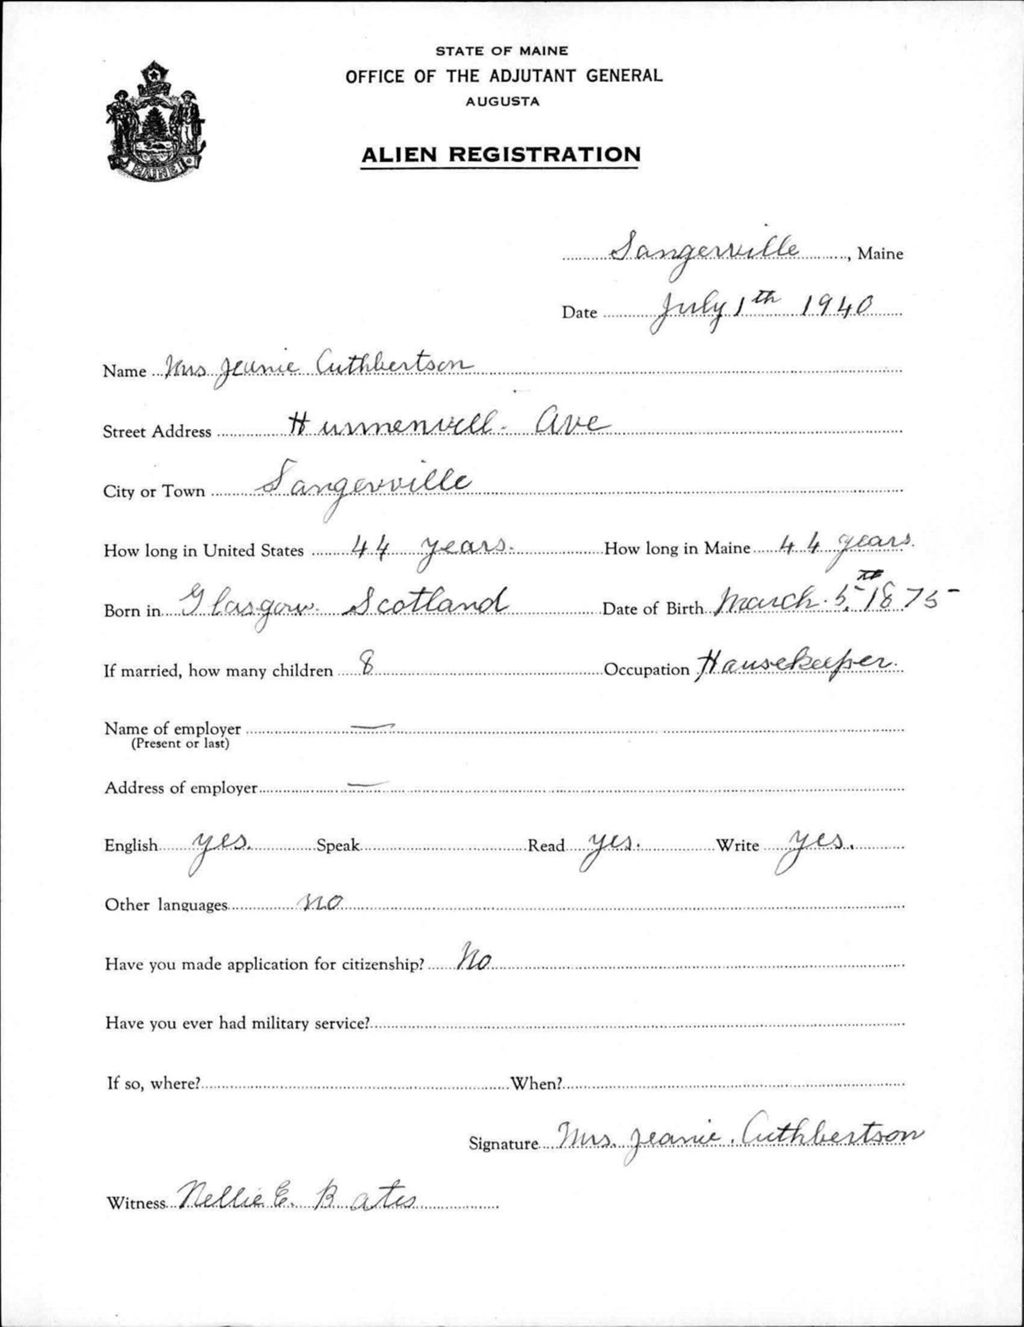 STATE OF MAINE
OFFICE OF THE ADJUTANT GENERAL
AUGUSTA
ALIEN REGISTRATION
MAINE
Sangerville, Maine
Date July 1th 1940
Name Mrs Jeanie Cuthbertson
Street Address Ave
City or Town Sangerville
How long in United States 44 years. How long in Maine 44 years.
Born in Glasgow. Scotland Date of Birth March. 5th 1875
If married, how many children 8 Occupation Housekeeper.
Name of employer —
(Present or last)
Address of employer —
English yes. Speak Read yes. Write yes.
Other languages no
Have you made application for citizenship? No
Have you ever had military service?
If so, where? When?
Signature Mrs. Jeanie. Cuthbertson
Witness Nellie E. Bates